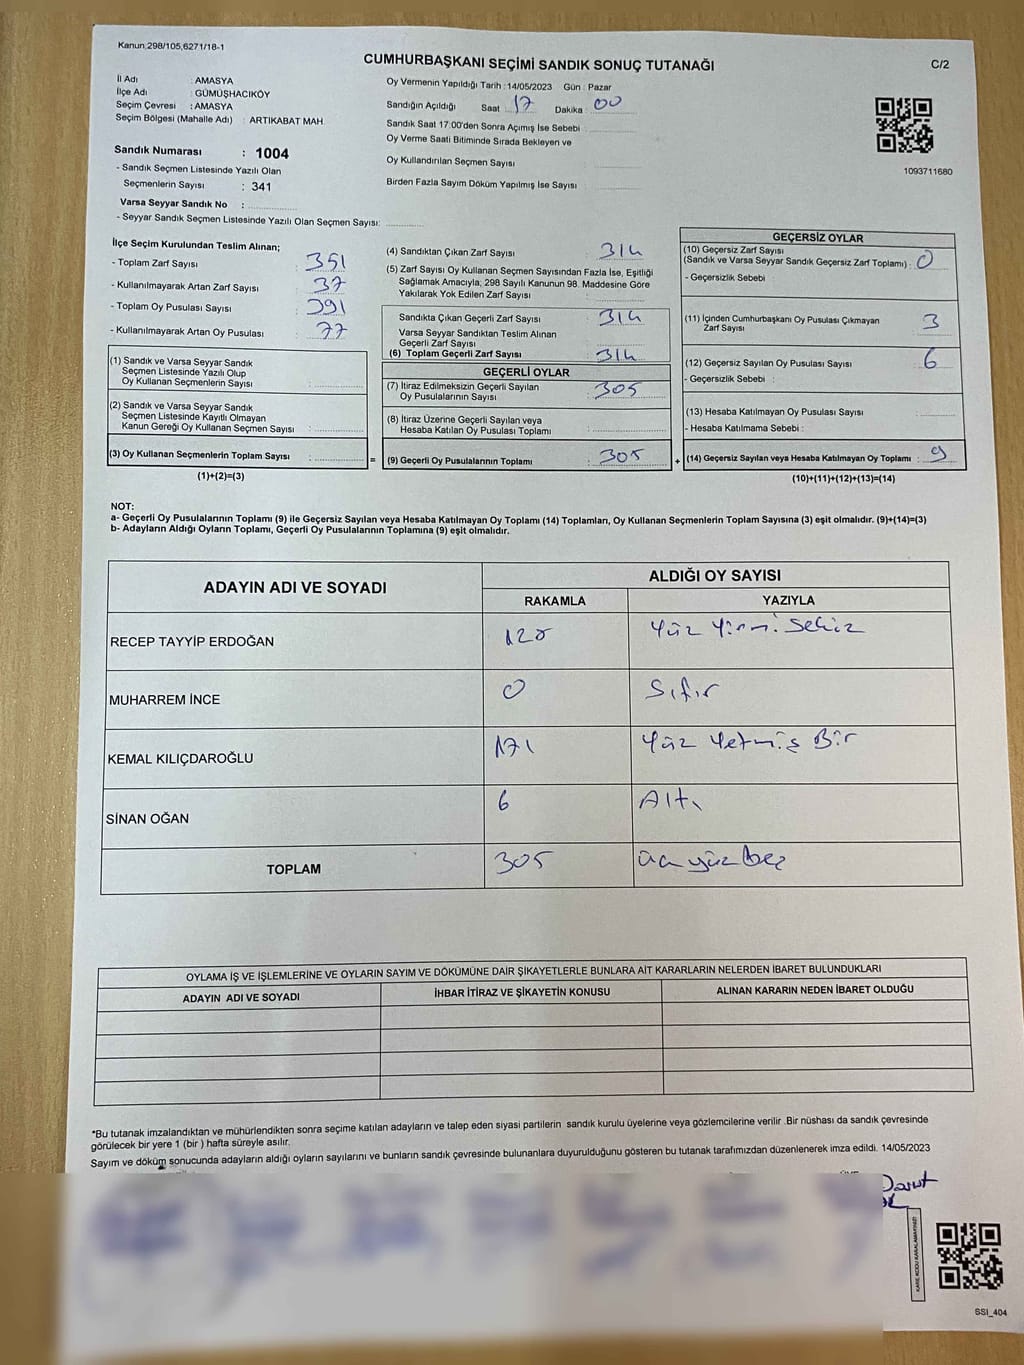 Kanun,298/105,6271/18-1
CUMHURBAŞKANI SEÇİMİ SANDIK SONUÇ TUTANAĞI
C/2
İl Adı : AMASYA
İlçe Adı : GÜMÜŞHACIKÖY
Seçim Çevresi : AMASYA
Seçim Bölgesi (Mahalle Adı) : ARTIKABAT MAH.
Sandık Numarası : 1004
- Sandık Seçmen Listesinde Yazılı Olan
Seçmenlerin Sayısı : 341
Varsa Seyyar Sandık No :
- Seyyar Sandık Seçmen Listesinde Yazılı Olan Seçmen Sayısı:
Oy Vermenin Yapıldığı Tarih : 14/05/2023 Gün : Pazar
Sandığın Açıldığı Saat 17 Dakika 00
Sandık Saat 17:00'den Sonra Açımış İse Sebebi
Oy Verme Saati Bitiminde Sırada Bekleyen ve
Oy Kullandırılan Seçmen Sayısı
Birden Fazla Sayım Döküm Yapılmış İse Sayısı
1093711680
İlçe Seçim Kurulundan Teslim Alınan;
- Toplam Zarf Sayısı : 351
- Kullanılmayarak Artan Zarf Sayısı : 37
- Toplam Oy Pusulası Sayısı : 391
- Kullanılmayarak Artan Oy Pusulası : 77
(1) Sandık ve Varsa Seyyar Sandık
Seçmen Listesinde Yazılı Olup
Oy Kullanan Seçmenlerin Sayısı :
(2) Sandık ve Varsa Seyyar Sandık
Seçmen Listesinde Kayıtlı Olmayan
Kanun Gereği Oy Kullanan Seçmen Sayısı :
(3) Oy Kullanan Seçmenlerin Toplam Sayısı : =
(1)+(2)=(3)
(4) Sandıktan Çıkan Zarf Sayısı : 314
(5) Zarf Sayısı Oy Kullanan Seçmen Sayısından Fazla İse, Eşitliği
Sağlamak Amacıyla, 298 Sayılı Kanunun 98. Maddesine Göre
Yakılarak Yok Edilen Zarf Sayısı :
Sandıkta Çıkan Geçerli Zarf Sayısı : 314
Varsa Seyyar Sandıktan Teslim Alınan
Geçerli Zarf Sayısı :
(6) Toplam Geçerli Zarf Sayısı : 314
GEÇERLİ OYLAR
(7) İtiraz Edilmeksizin Geçerli Sayılan
Oy Pusulalarının Sayısı : 305
(8) İtiraz Üzerine Geçerli Sayılan veya
Hesaba Katılan Oy Pusulası Toplamı :
(9) Geçerli Oy Pusulalarının Toplamı : 305 +
GEÇERSİZ OYLAR
(10) Geçersiz Zarf Sayısı
(Sandık ve Varsa Seyyar Sandık Geçersiz Zarf Toplamı) : 0
- Geçersizlik Sebebi
(11) İçinden Cumhurbaşkanı Oy Pusulası Çıkmayan
Zarf Sayısı 3
(12) Geçersiz Sayılan Oy Pusulası Sayısı : 6
- Geçersizlik Sebebi :
(13) Hesaba Katılmayan Oy Pusulası Sayısı
- Hesaba Katılmama Sebebi :
(14) Geçersiz Sayılan veya Hesaba Katılmayan Oy Toplamı : 9
(10)+(11)+(12)+(13)=(14)
NOT:
a- Geçerli Oy Pusulalarının Toplamı (9) ile Geçersiz Sayılan veya Hesaba Katılmayan Oy Toplamı (14) Toplamları, Oy Kullanan Seçmenlerin Toplam Sayısına (3) eşit olmalıdır. (9)+(14)=(3)
b- Adayların Aldığı Oyların Toplamı, Geçerli Oy Pusulalarının Toplamına (9) eşit olmalıdır.
ADAYIN ADI VE SOYADI ALDIĞI OY SAYISI
RAKAMLA YAZIYLA
RECEP TAYYİP ERDOĞAN 128 Yüz Yirmi Sekiz
MUHARREM İNCE 0 Sıfır
KEMAL KILIÇDAROĞLU 171 Yüz Yetmiş Bir
SİNAN OĞAN 6 Altı
TOPLAM 305 üçyüzbeş
OYLAMA İŞ VE İŞLEMLERİNE VE OYLARIN SAYIM VE DÖKÜMÜNE DAİR ŞİKAYETLERLE BUNLARA AİT KARARLARIN NELERDEN İBARET BULUNDUKLARI
ADAYIN ADI VE SOYADI İHBAR İTİRAZ VE ŞİKAYETİN KONUSU ALINAN KARARIN NEDEN İBARET OLDUĞU
*Bu tutanak imzalandıktan ve mühürlendikten sonra seçime katılan adayların ve talep eden siyasi partilerin sandık kurulu üyelerine veya gözlemcilerine verilir .Bir nüshası da sandık çevresinde
görülecek bir yere 1 (bir ) hafta süreyle asılır.
Sayım ve döküm sonucunda adayların aldığı oyların sayılarını ve bunların sandık çevresinde bulunanlara duyurulduğunu gösteren bu tutanak tarafımızdan düzenlenerek imza edildi. 14/05/2023
KARE KODU KARALAMAYINIZ!
SSI_404